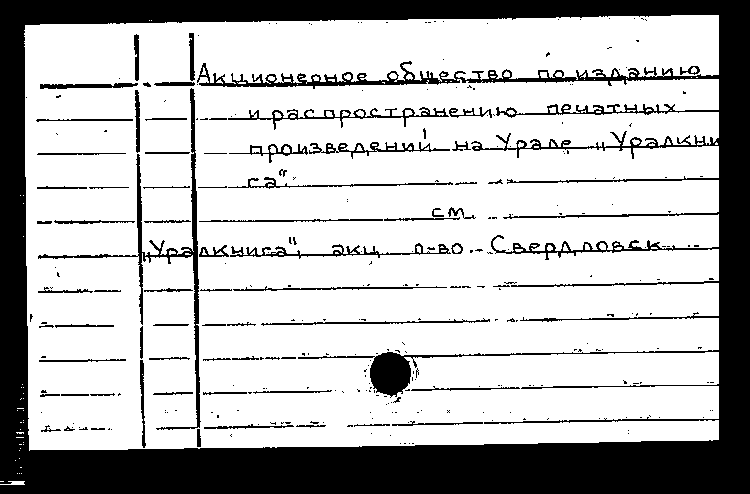 Акционерное общество по изданию
и распространению печатных
произведений на Урале „Уралкни
га".
см.
„Уралкнига", акц. о-во. Свердловск.